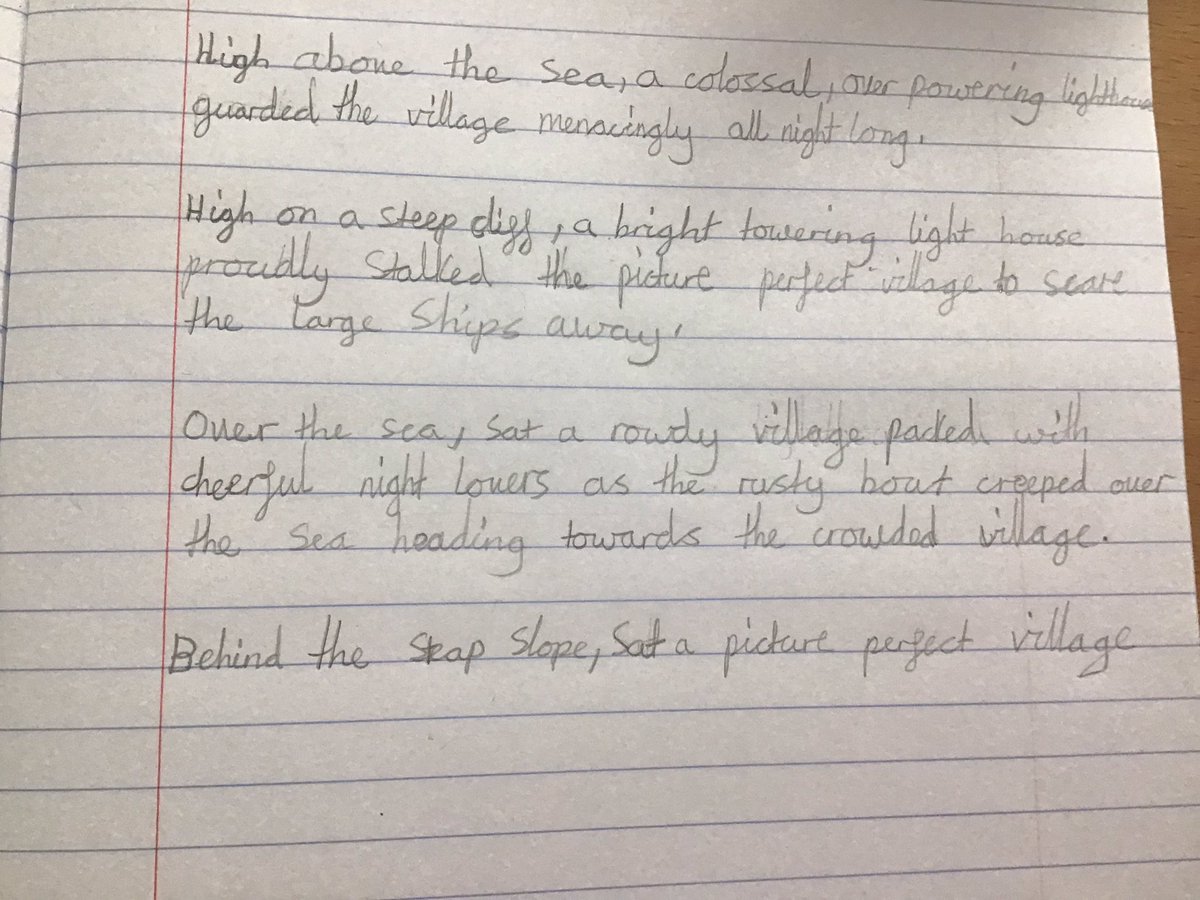 High above the sea, a colossal, over powering lighthouse
guarded the village menacingly all night long.
High on a steep cliff, a bright towering light house
proudly stalked the picture perfect village to scare
the large ships away.
Over the sea, sat a rowdy village packed with
cheerful night lovers as the rusty boat creeped over
the sea heading towards the crowded village.
Behind the steap slope, sat a picture perfect village